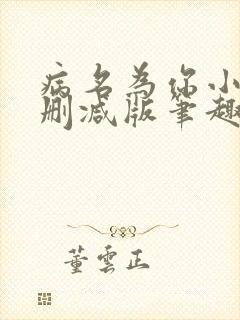 病名為你小
删减版笔趣
董雲正